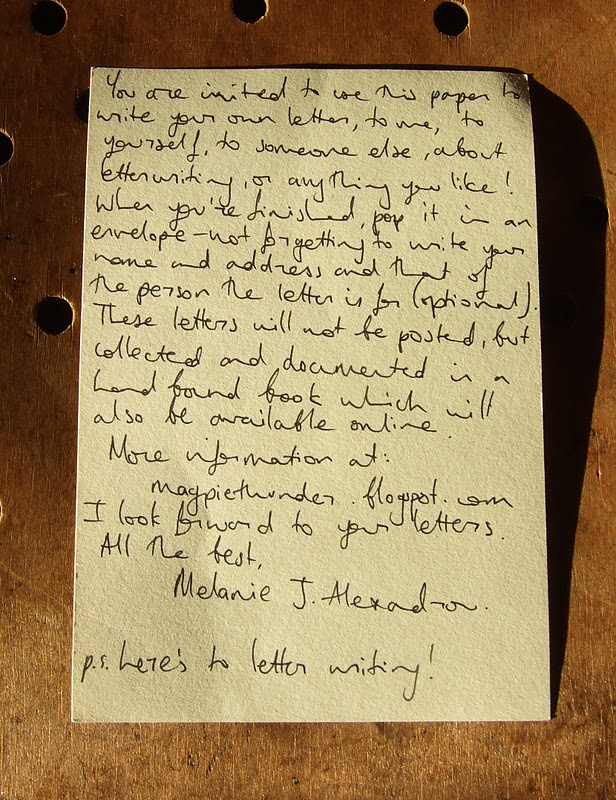 You are invited to use this paper to
write your own letter, to me, to
yourself, to someone else, about
letterwriting, or anything you like!
When you're finished, pop it in an
envelope - not forgetting to write your
name and address and that of
the person the letter is for (optional).
These letters will not be posted, but
collected and documented in a
hand bound book which will
also be available online.
More information at:
magpiethunder.blogspot.com
I look forward to your letters.
All the best,
Melanie J. Alexandrou.
p.s. here's to letter writing!